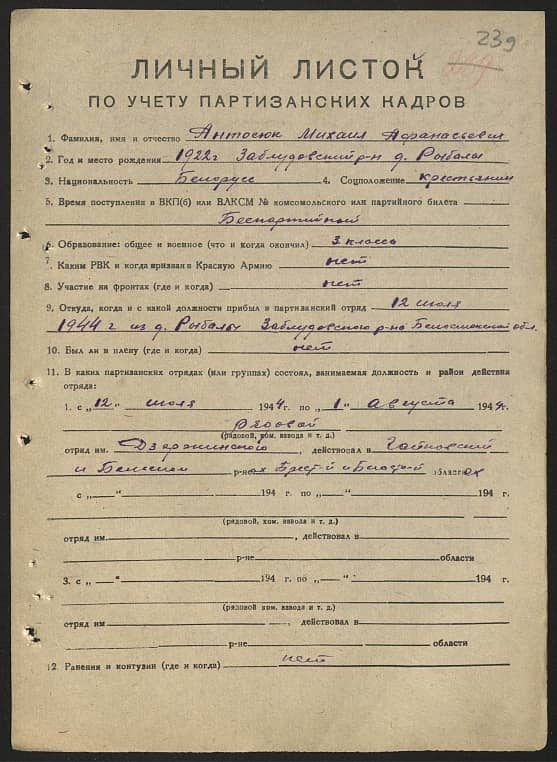 239
ЛИЧНЫЙ ЛИСТОК
ПО УЧЕТУ ПАРТИЗАНСКИХ КАДРОВ
1. Фамилия, имя и отчество Антосюк Михаил Афанасьевич
2. Год и место рождения 1922г Заблудовский р-н д. Рыбалы
3. Национальность Белорус 4. Соцположение крестьянин
5. Время поступления в ВКП(б) или ВЛКСМ № комсомольского или партийного билета
Беспартийный
6. Образование: общее и военное (что и когда окончил) 3 класса
7. Каким РВК и когда призван в Красную Армию нет
8. Участие на фронтах (где и когда) нет
9. Откуда, когда и с какой должности прибыл в партизанский отряд 12 июля
1944 г из д. Рыбалы Заблудовского р-на Белостокской обл.
10. Был ли в плену (где и когда) нет
11. В каких партизанских отрядах (или группах) состоял, занимаемая должность и район действия
отряда:
1. с „12" июля 1944г. по „1" августа 1944г.
рядовой
(рядовой, ком. взвода и т. д.)
отряд им. Дзержинского, действовал в Гайновский
и р-нах Брест-й и Белост-й областях
с „—" 194 г. по „—" 194 г.
(рядовой, ком. взвода и т. д.)
отряд им. , действовал в
р-не области
3. с „—" 194 г. по „—" 194 г.
(рядовой, ком. взвода и т. д.)
отряд им. , действовал в
р-не области
12. Ранения и контузии (где и когда) нет